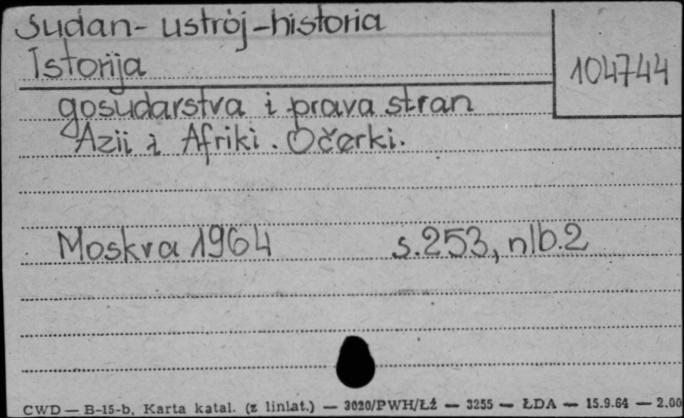 Sudan - ustrój - historia
Istorija
104744
gosudarstva i prava stran
Azii i Afriki. Očerki.
Moskva 1964 s. 253, nlb. 2
CWD — B-15-b, Karta katal. (z liniat.) — 3020/PWH/Łź — 3255 — ŁDA — 15.9.64 — 2.00